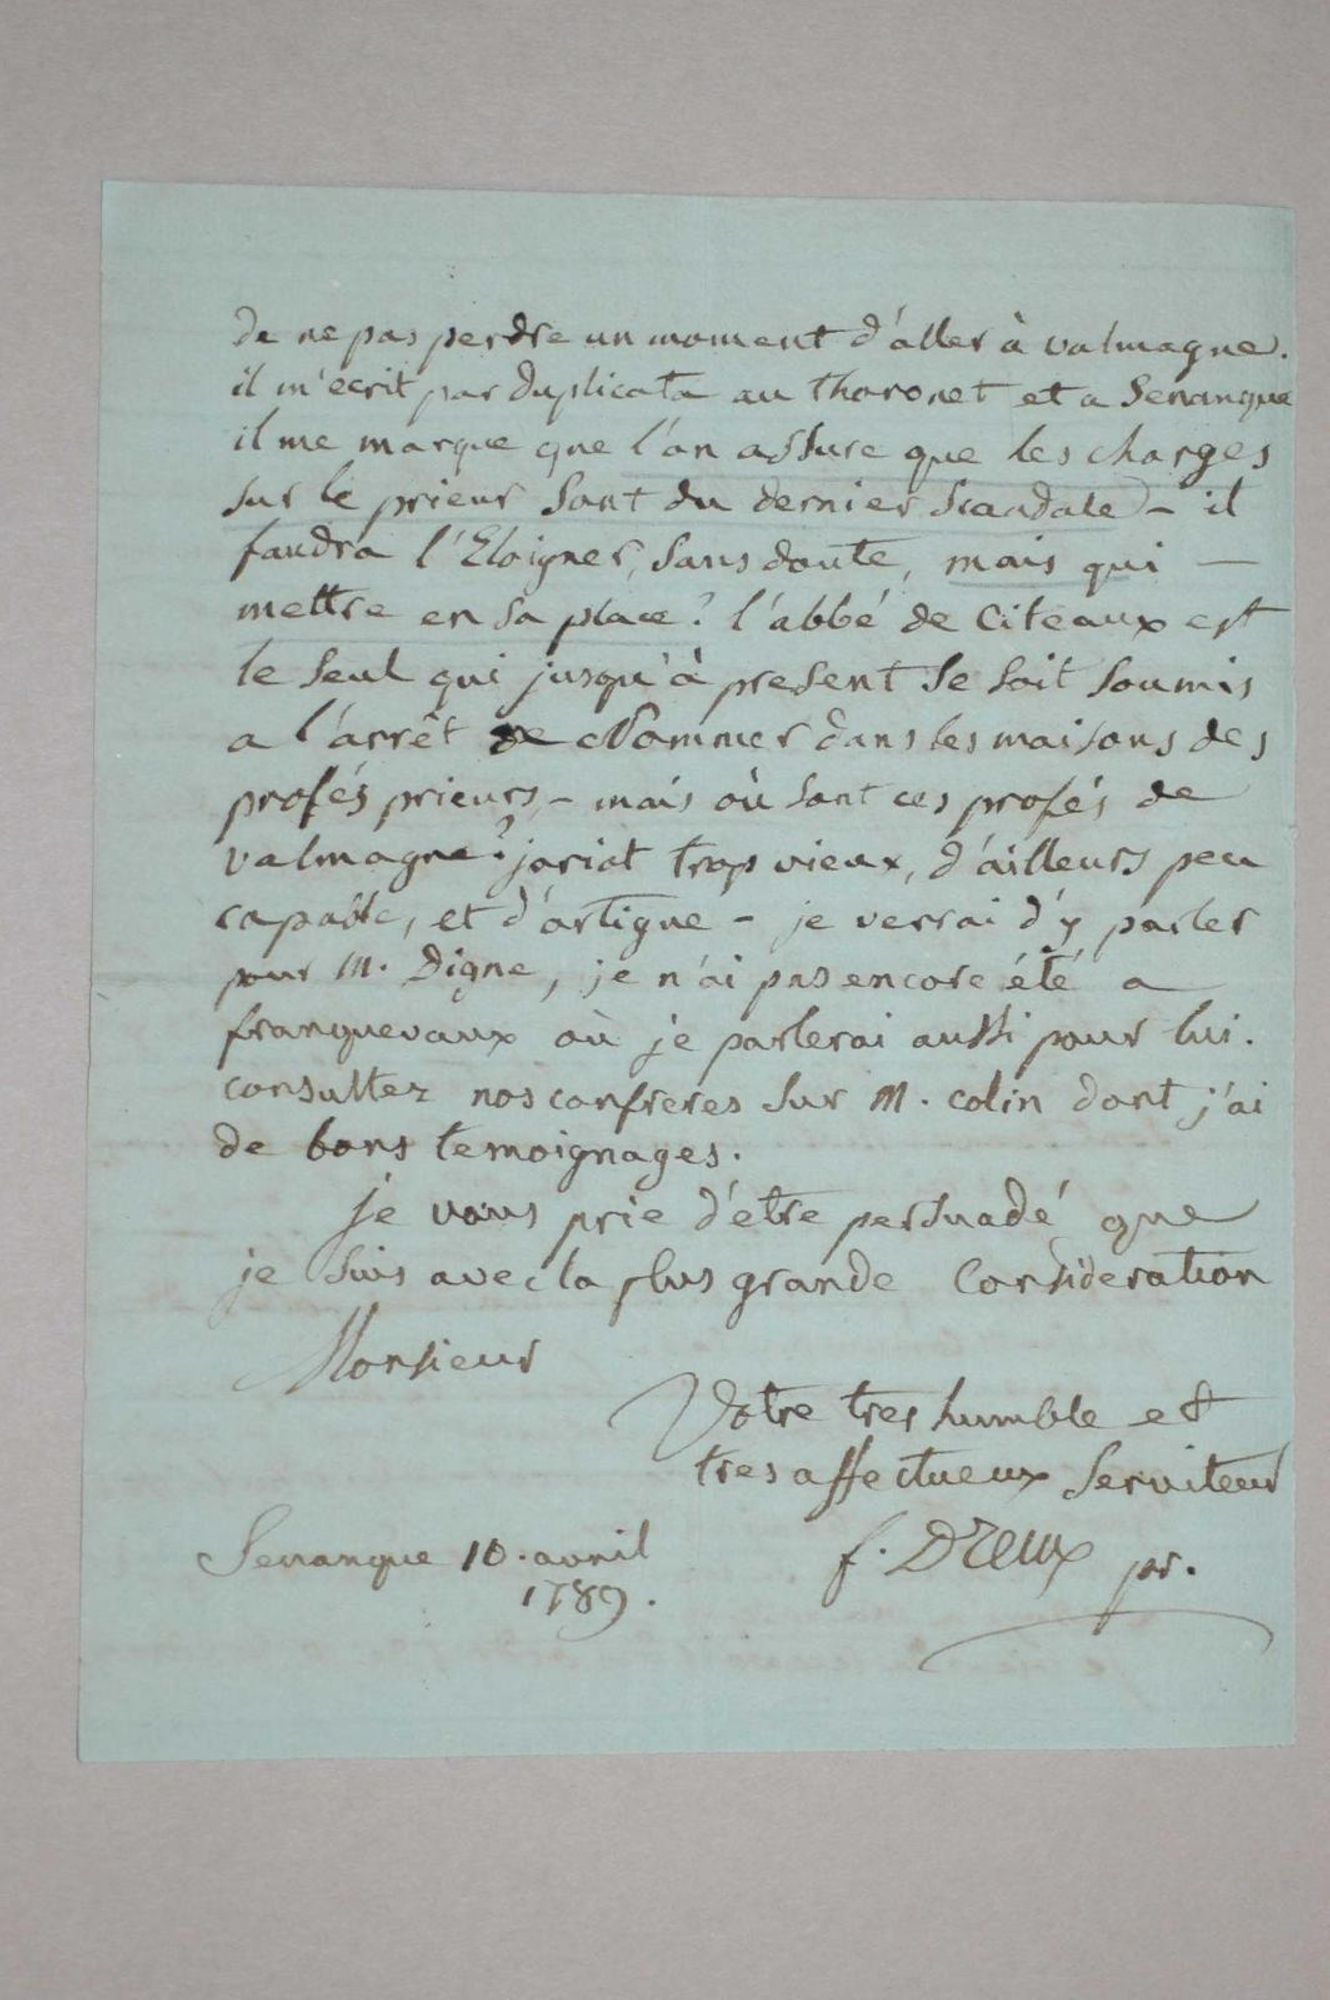 de ne pas perdre un moment d'aller à valmagne.
il m'ecrit par duplicata au thoronet et a Senanque
il me marque que l'on assure que les charges
sur le prieur sont du dernier scandale - il
faudra l'Eloigner, sans doute, mais qui —
mettre en sa place? l'abbé de Citeaux est
le seul qui jusqu'à present se soit soumis
a l'arrêt de Nommer dans les maisons des
profés prieurs, - mais où sont ces profés de
valmagne? joriot trop vieux, d'ailleurs peu
capable, et d'artigue - je verrai d'y parler
pour M. Digne, je n'ai pas encore été a
franquevaux où je parlerai aussi pour lui.
consultez nos confreres sur M. colin dont j'ai
de bons temoignages.
je vous prie d'etre persuadé que
je suis avec la plus grande Consideration
Monsieur
Votre tres humble et
tres affectueux Serviteur
f. Dreux pr.
Senanque 10. avril
1789.